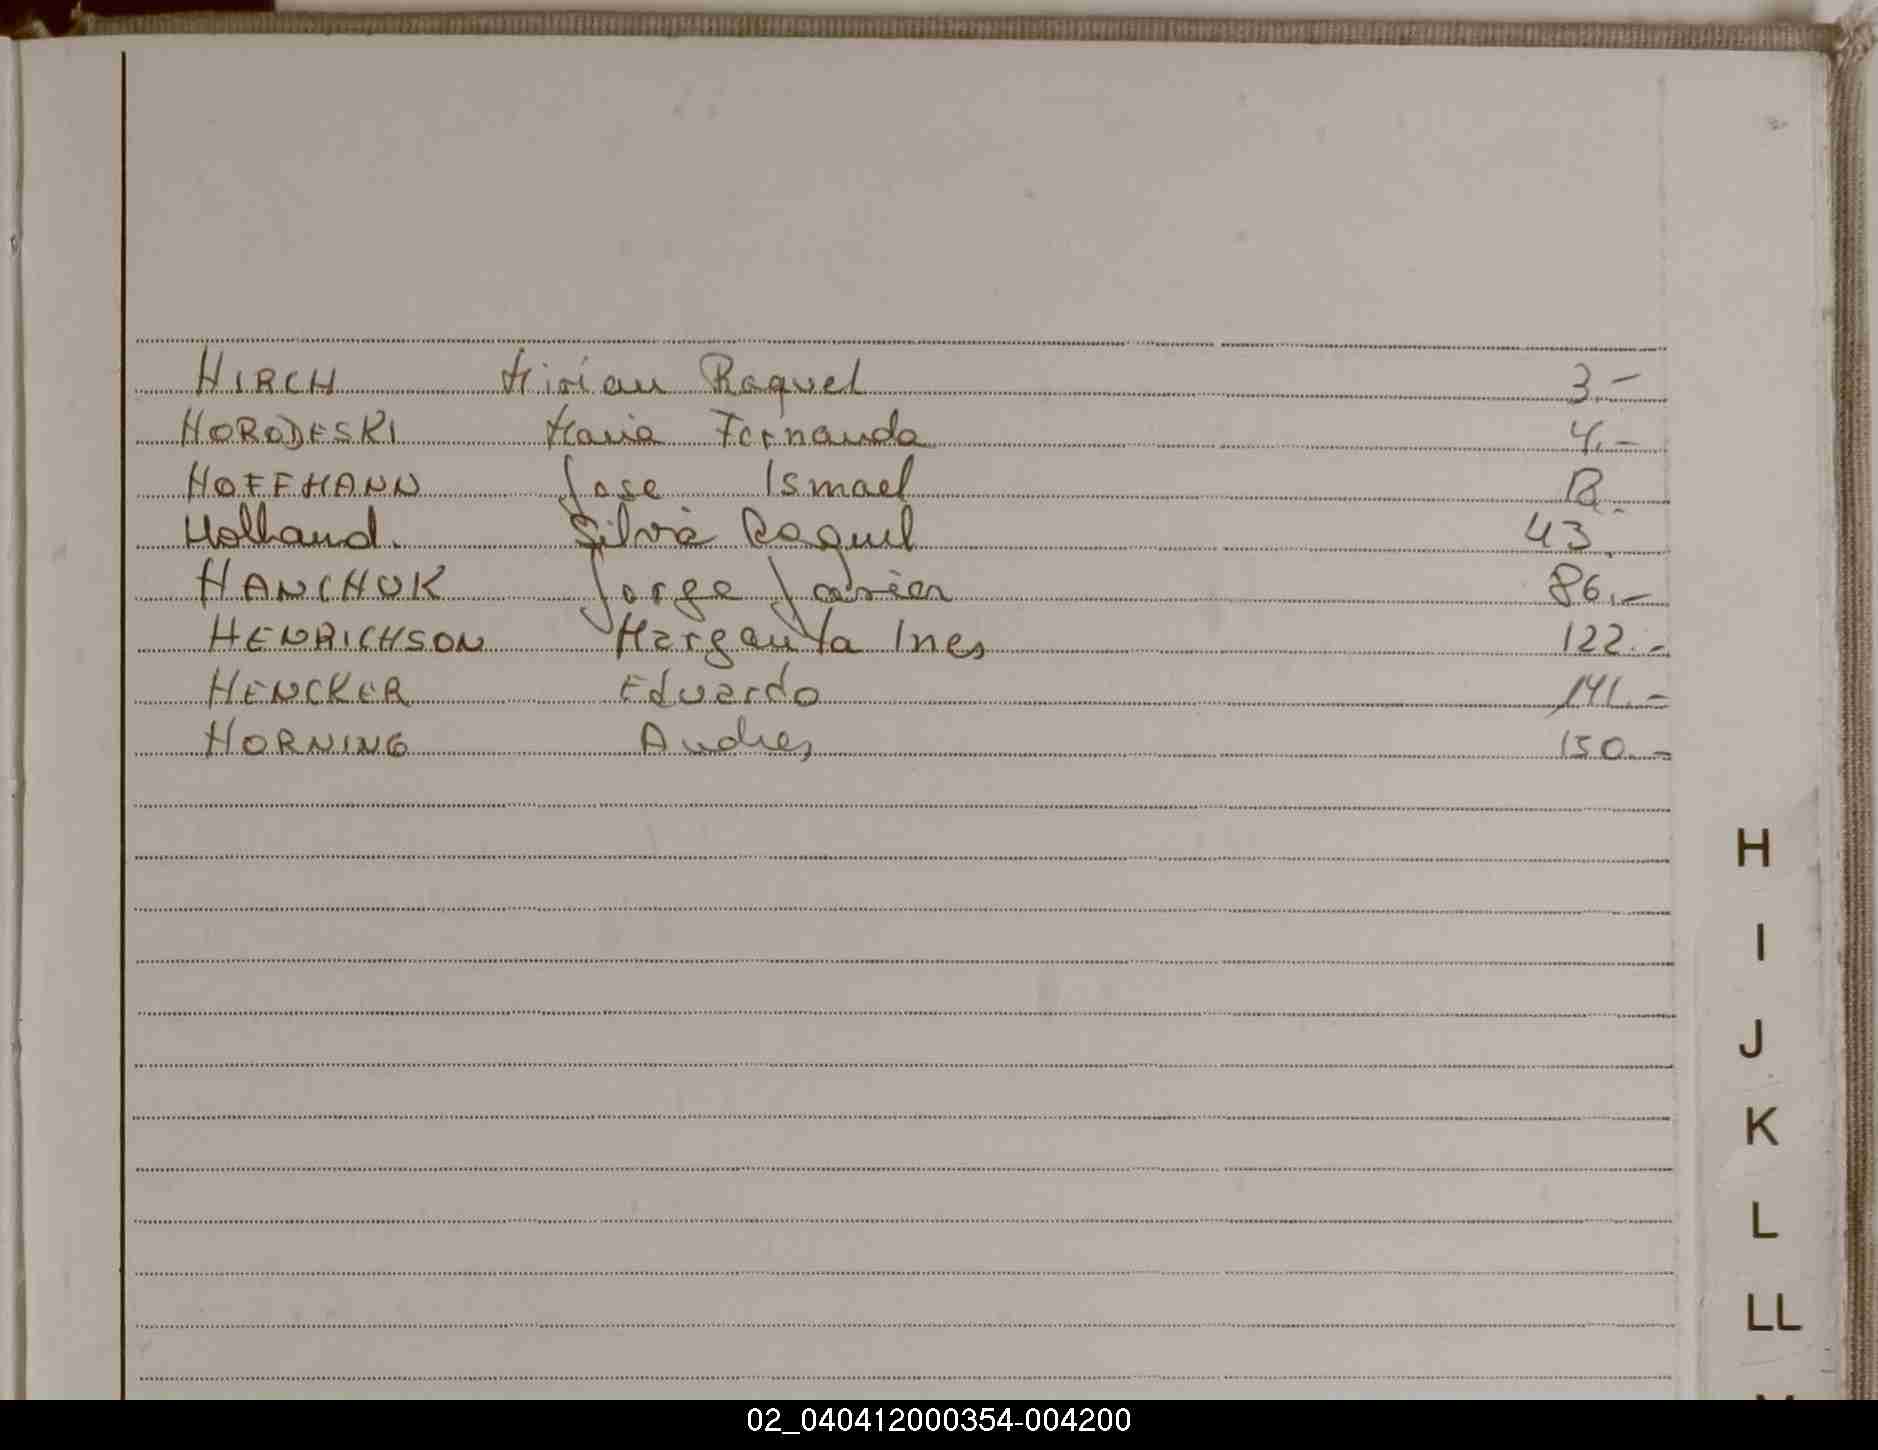 HIRCH Mirian Raquel 3.-
HORODESKI Maria Fernanda 4.-
HOFFMANN Jose Ismael 12.-
Holland. Silvia Raquel 43.
HANCHUK Jorge Javier 86.-
HENRICHSON Margarita Ines 122.-
HENCKER Eduardo 141.-
HORNING Andres 150.-
H
I
J
K
L
LL
02_040412000354-004200